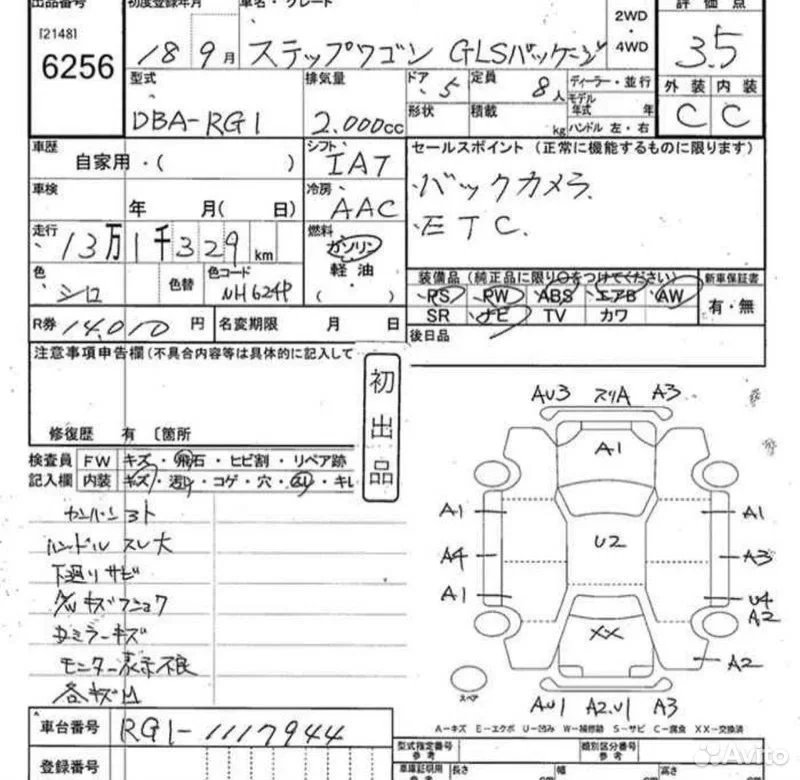 出品番号 初度登録年月 車名・グレード 2WD・4WD 評価点
[2148]
6256 18 9月 ステップワゴン GLSパッケージ 3.5
型式 排気量 ドア 5 定員 8人 ディーラー・並行 外装 内装
DBA-RG1 2.000cc 形状 積載 kg モデル年式 年 C C
ハンドル 左・右
車歴 自家用・( ) シフト IAT セールスポイント (正常に機能するものに限ります)
車検 年 月( 日) 冷房 AAC バックカメラ
ETC
走行 13万1千329km 燃料 ガソリン
軽油
・( )
色 シロ 色替 色コード NH624P 装備品 (純正品に限り○をつけてください) 新車保証書
PS PW ABS エアB AW 有・無
SR ナビ TV カワ
R券 14,010円 名変期限 月 日 後日品
注意事項申告欄(不具合内容等は具体的に記入して
初出品
修復歴 有 〔箇所
検査員 FW キズ・飛石・ヒビ割・リペア跡
記入欄 内装 キズ・コゲ・穴・キレ
ハンドル スレ大
下廻りサビ
モニター表示不良
AU3 A3
A1
A1 A1
A4 U2 A3
A1 U4
A2
XX
A2
スペア
AU1 A2.U1 A3
A-キズ E-エクボ U-凹み W-補修跡 S-サビ C-腐食 XX-交換済
車台番号 RG1-1117944
登録番号 型式指定番号 参考 類別区分番号 参考
車庫証明用 参考 長さ cm 幅 cm 高さ cm
Avito